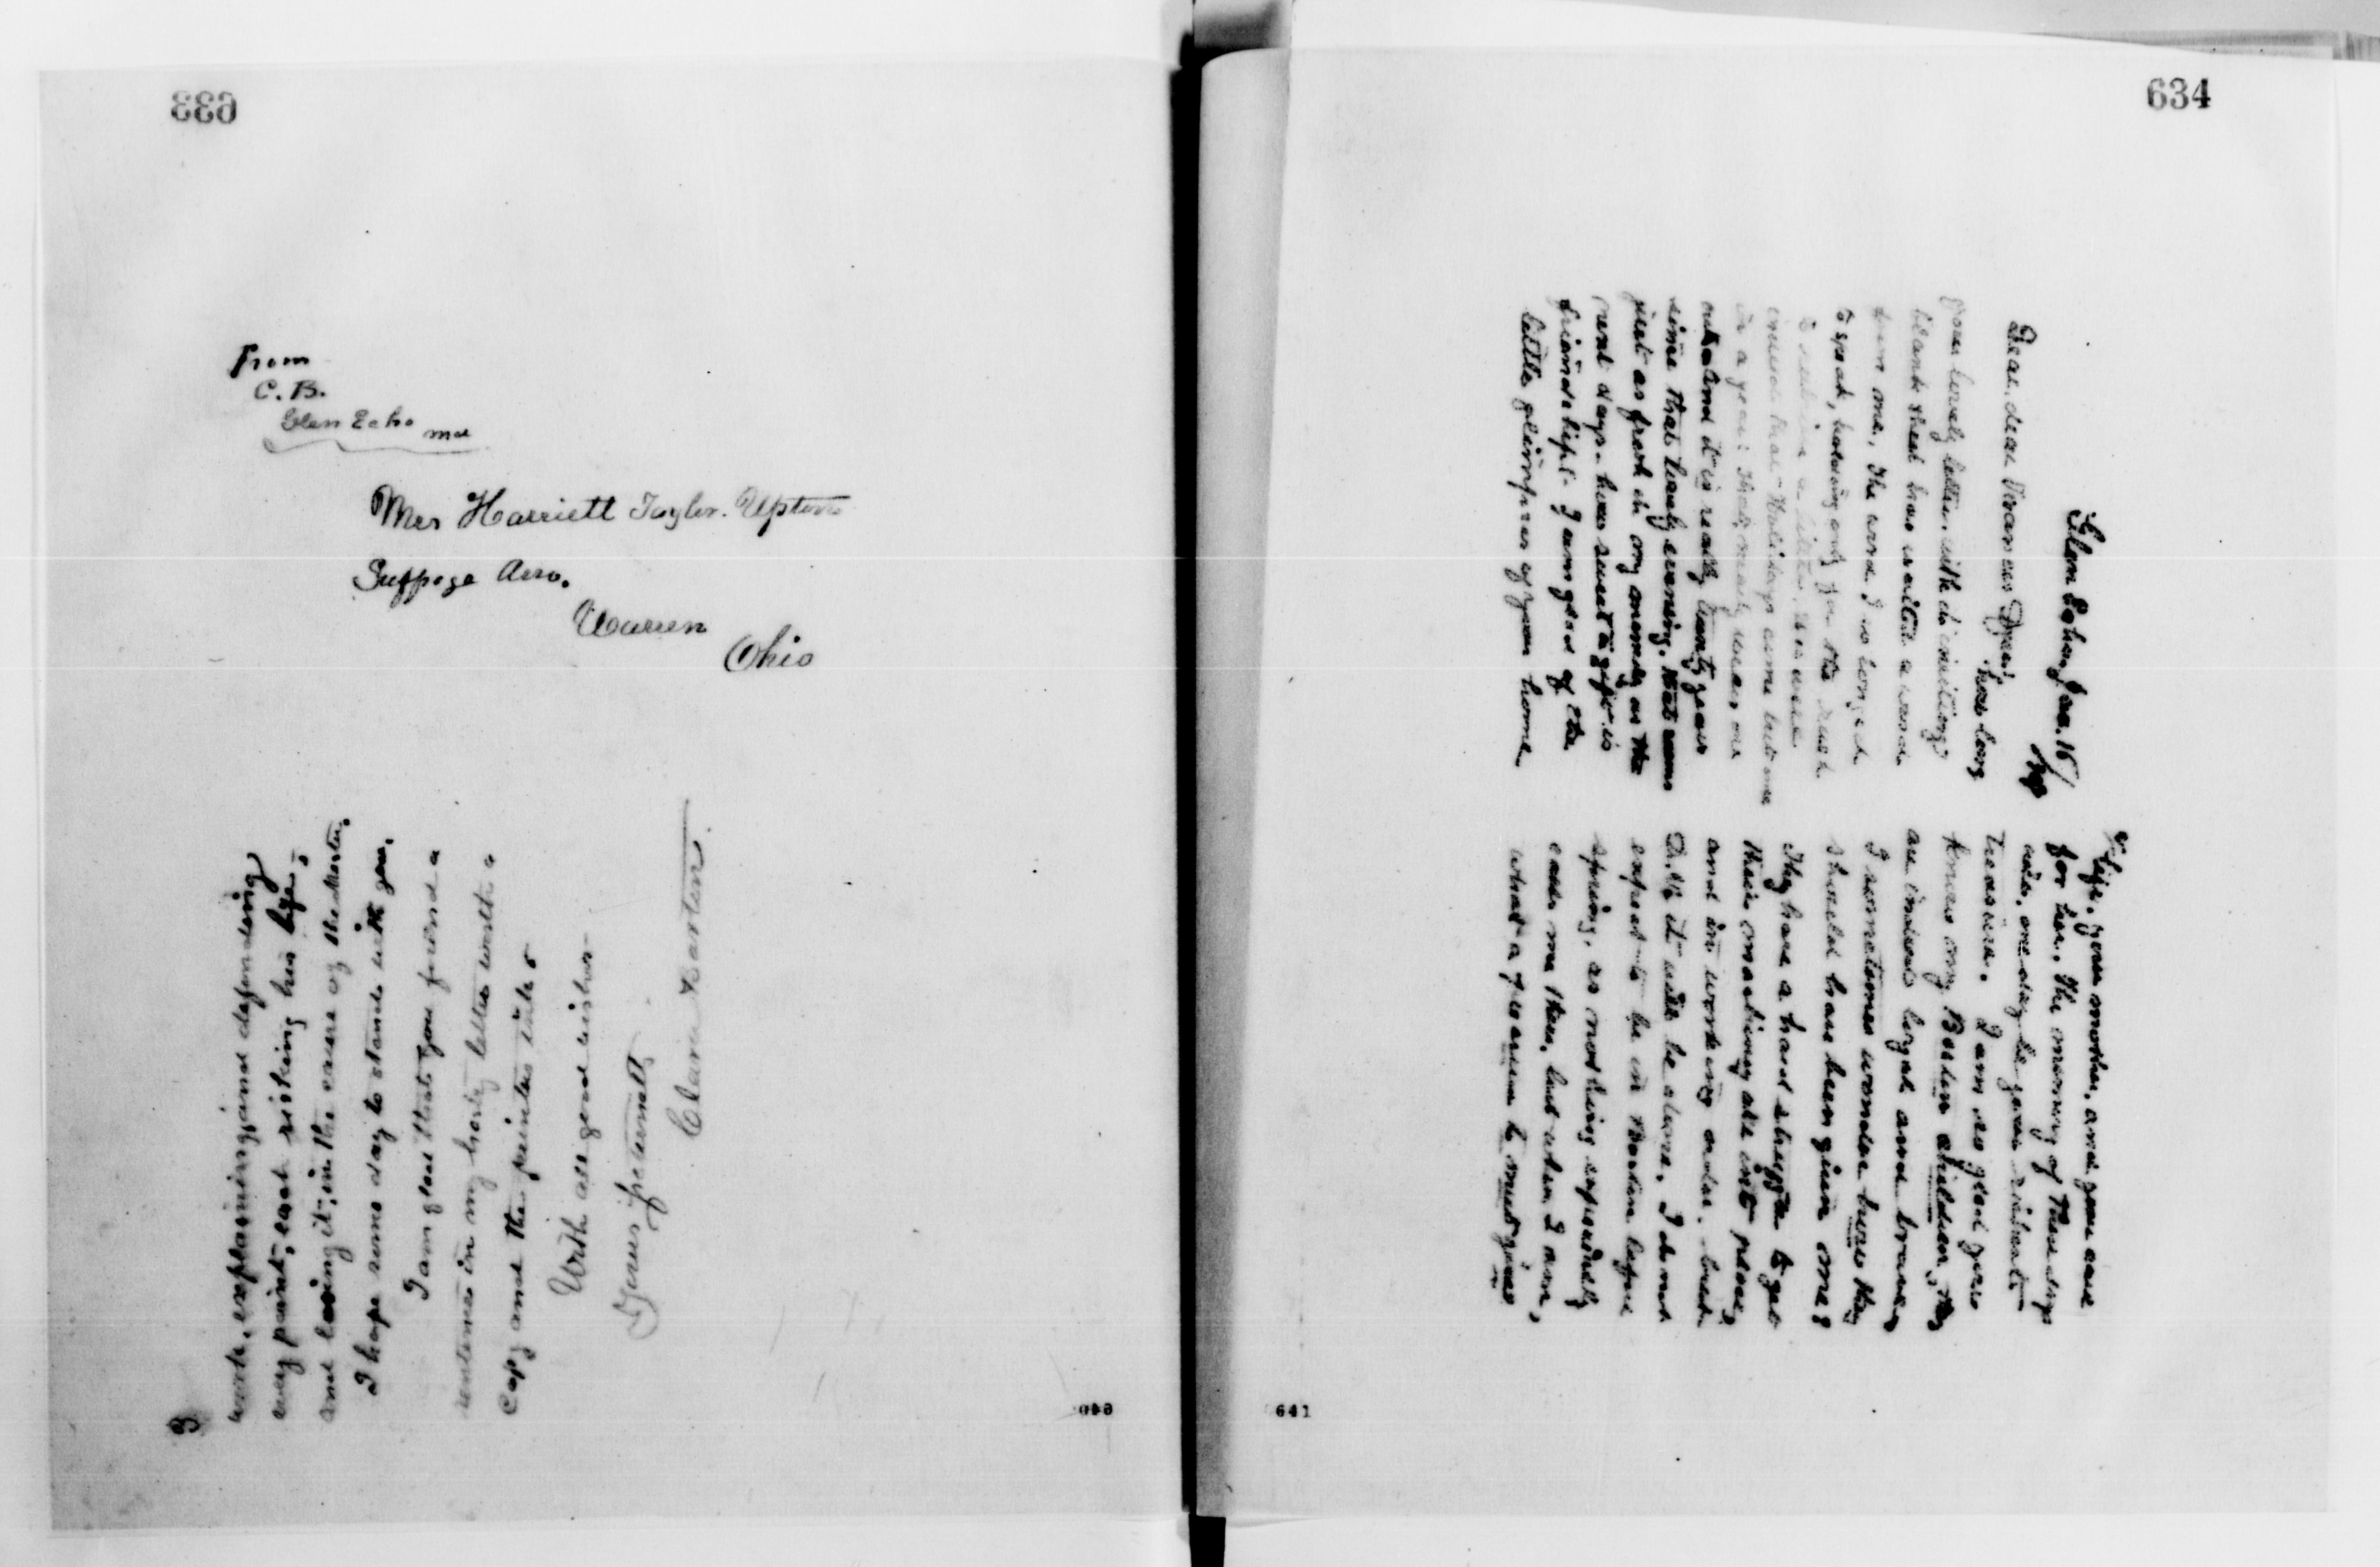 633
From
C. B.
Glen Echo Md
Mrs Harriett Taylor. Upton
Suffrage Asso.
Warren
Ohio
3
work, explaining, and defending
every point, east risking his life,
and losing it, in the cause of the Master.
I hope some day to stand with you.
I am glad that you found a
sentence in my hasty letter worth a
copy and the printers ink
With all good wishes
Yours fraternally
Clara Barton.
640
634
Glen Echo, Jan. 16/
Dear, dear Frances
how long
your lovely letter, with its
blank sheet has waited a word
from me, The word I so longed
to speak, 
to
that Holidays came but once
in a year: 
and it is really twenty years
since that lovely evening, that seems
just as fresh in my memory as the
next days. how sweet a gift is
friendship. I am glad of the
little glimpses of your home
life, your mother, and your care
for her. The memory of these days
will, one day be your richest
treasure. I am so glad you
know my Boston children, they
are indeed loyal and brave,
I sometimes wonder how they
should have been given me?
They have a hard struggle to get
their machinery all into place,
and in working order. but
it will be done. I do not
expect to be in Boston before
spring, as nothing especially
calls me there, but when I am,
what a pleasure to meet you
641